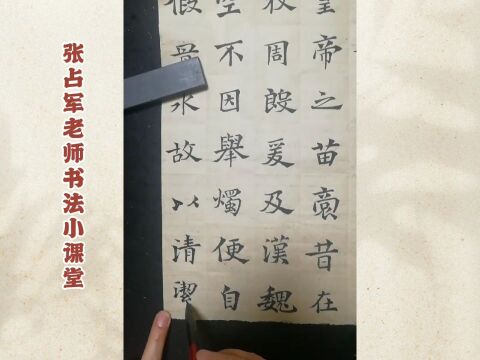 张占军老师书法小课堂
皇帝之苗裔昔在
牧周殷爰及漢魏
空不因舉燭便自
假置水故以清潔